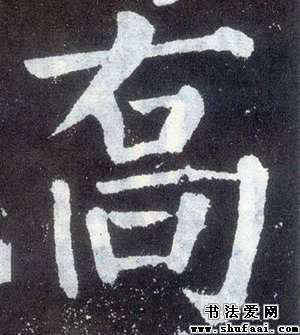 喬
书法爱网
www.shufaai.com